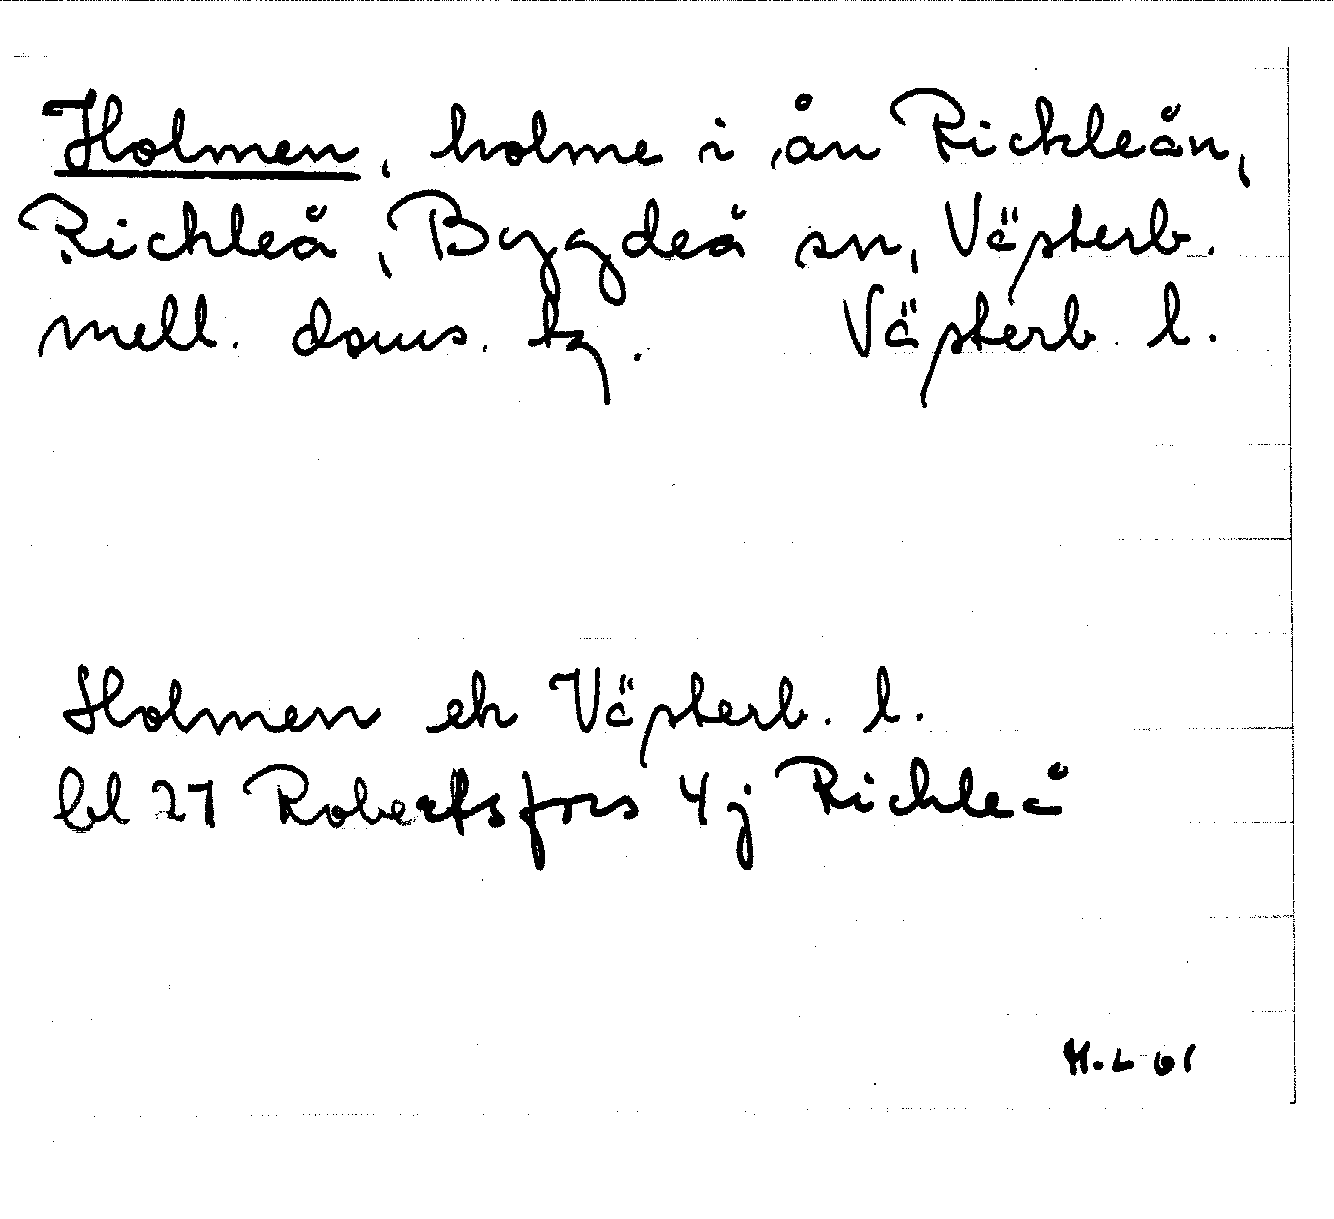 Holmen, holme i ån Rickleån,
Rickleå, Bygdeå sn, Västerb.
mell. doms. tg. Västerb. l.
Holmen ek Västerb. l.
bl 27 Robertsfors 4j Rickleå
M.L 61